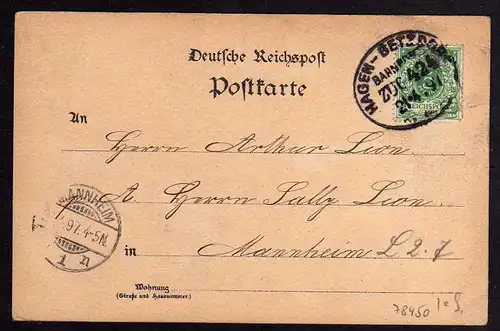 Deutsche Reichspost
Postkarte
HAGEN-BETZDORF
BAHNPOST
ZUG 424
REICHSPOST
An
Herrn Arthur Lion
A. Herrn Sally Lion
MANNHEIM
97.4-5N.
1 n
in Mannheim L 2. 7
Wohnung
(Straße und Hausnummer)
78450